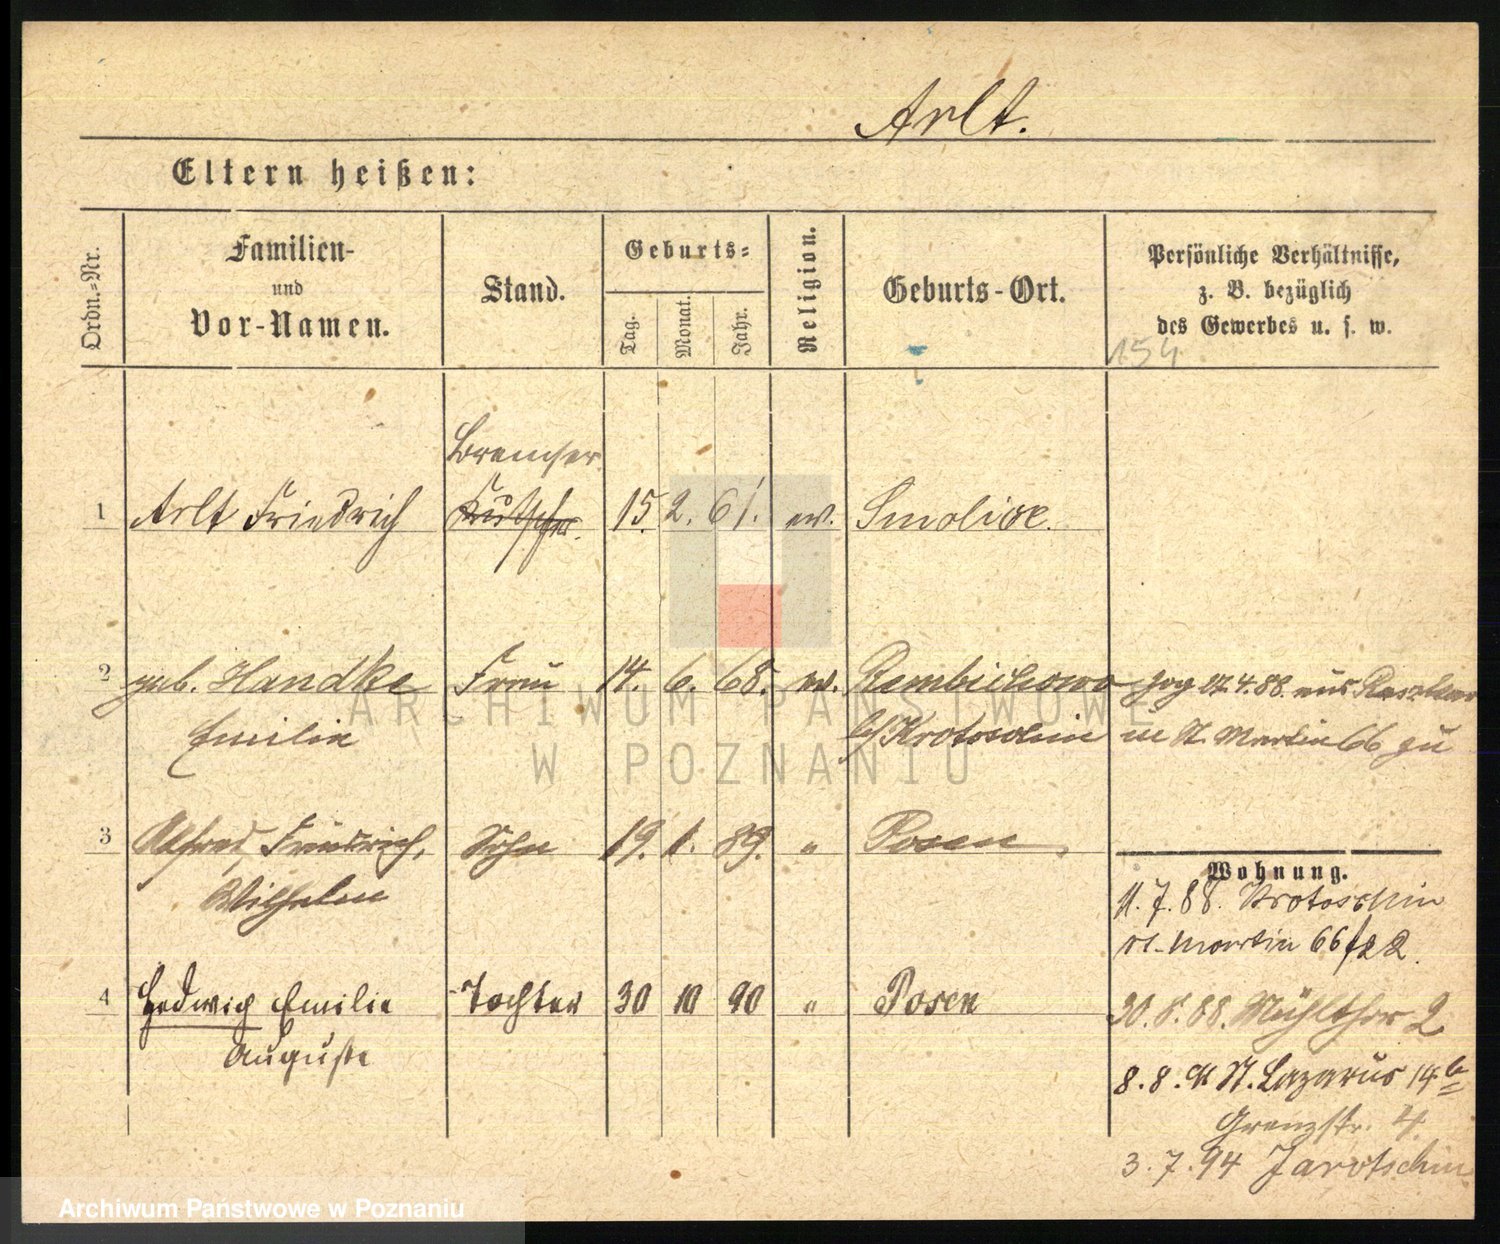 Arlt.
Eltern heißen:
Ordn.=Nr.
Familien-
und
Vor-Namen.
Stand.
Geburts=
Tag.
Monat.
Jahr.
Religion.
Geburts-Ort.
Persönliche Verhältnisse,
z. B. bezüglich
des Gewerbes u. s. w.
154
Bremser
1 Arlt Friedrich Kutscher. 15. 2. 61. ev. Smolice.
2 geb. Handke Frau 14. 6. 68. ev. zog 27.4.88. aus
Emilie b/ Krotoschin in St. Martin 66 zu
3 Alfred, Friedrich, Sohn 19. 1. 89. " Posen
Wilhelm
Wohnung.
11. 7. 88. Krotoschin
St. Martin 66
4 Hedwig Emilie Tochter 30 10 90 " Posen
Auguste
30. 8. 88. Mühlthor 2
8. 8. 91 St. Lazarus 14b
Grenzstr. 4
3. 7. 94 Jarotschin
ARCHIWUM PAŃSTWOWE
W POZNANIU
Archiwum Państwowe w Poznaniu